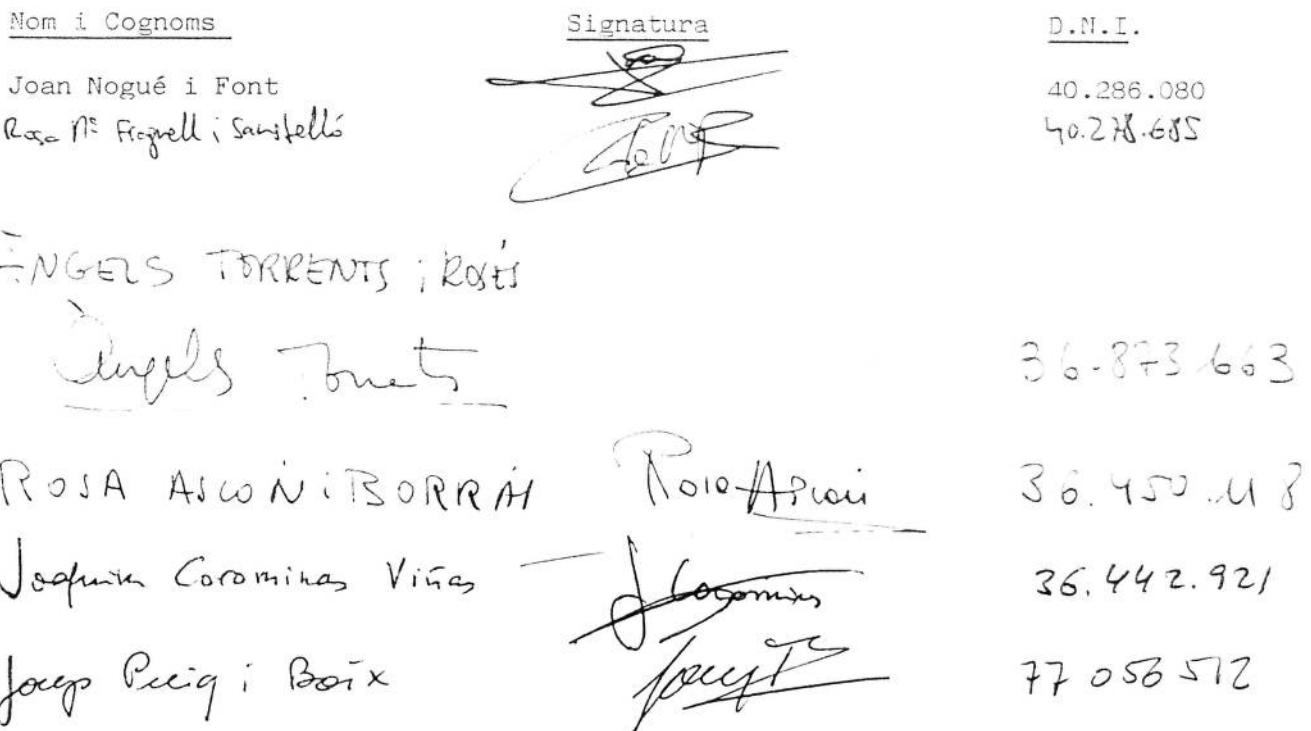 Nom i Cognoms Signatura D.N.I.
Joan Nogué i Font 40.286.080
Rosa Mª i 40.278.685
ÀNGELS TORRENTS i ROSÉS
Àngels Torrents 36.873.663
ROSA ASCON i BORRÀS Rosa Ascon 36.450.118
Joaquim Corominas Viñas J Corominas 36.442.921
Josep Puig i Boix Josep 77 056 512